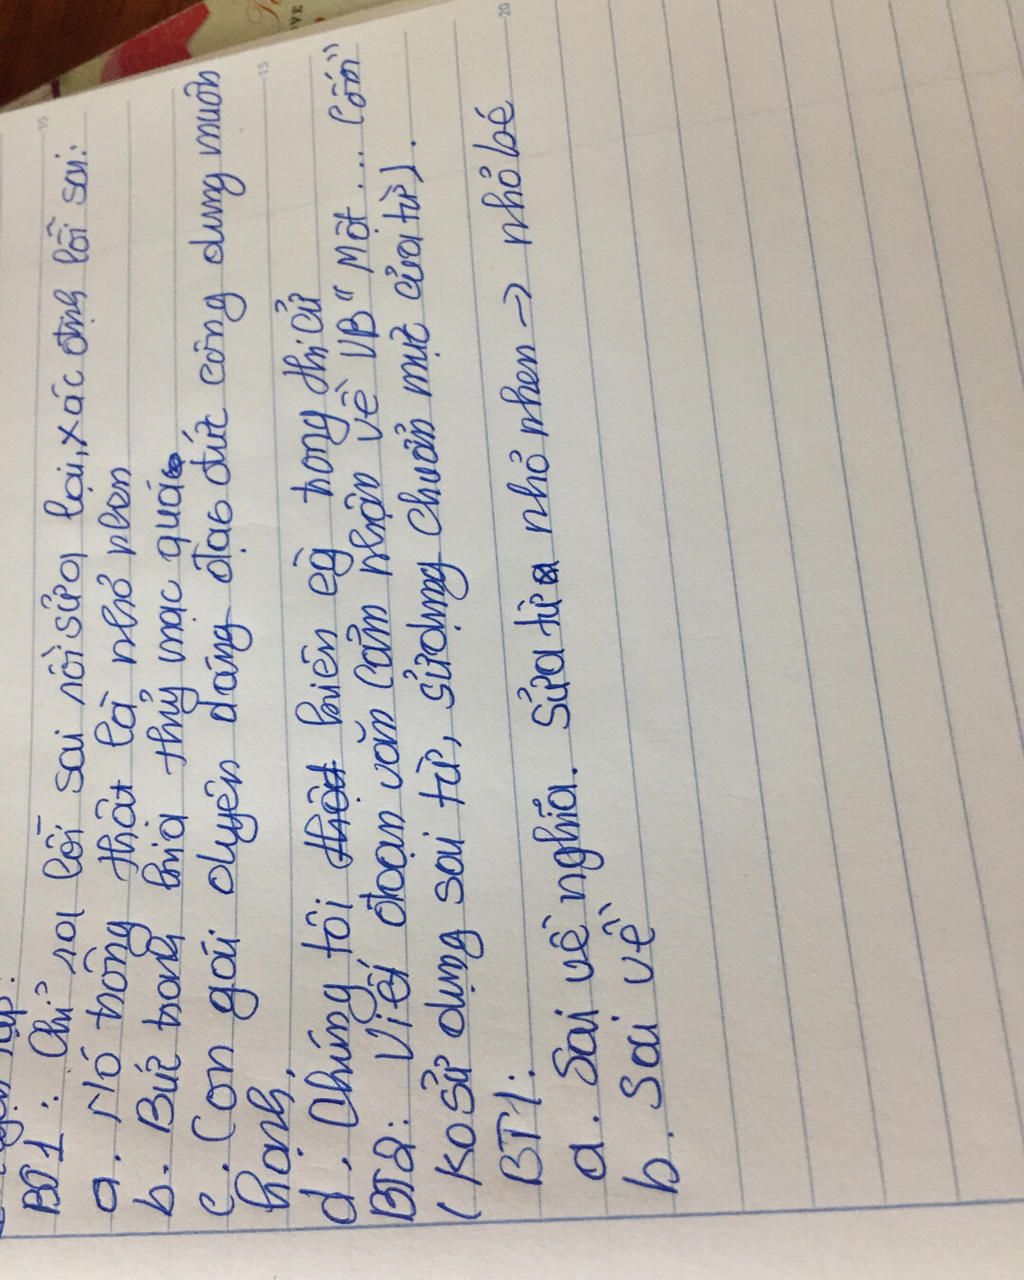 BT1: Chỉ ra lỗi sai rồi sửa lại, xác định lỗi sai:
a. Nó trông thật là nhỏ nhen
b. Bức tranh kia thuỷ mạc quá
c. Con gái duyên dáng đạo đức công dung muôn
hạnh.
d. Chúng tôi hiên ng trong thi cử
BT2: Viết đoạn văn cảm nhận về VB "Một ... cốm"
(Ko sử dụng sai từ, sử dụng chuẩn mực của từ).
BT1:
a. Sai về nghĩa. Sửa từ nhỏ nhen -> nhỏ bé
b. Sai về
10
15
20
LOVE